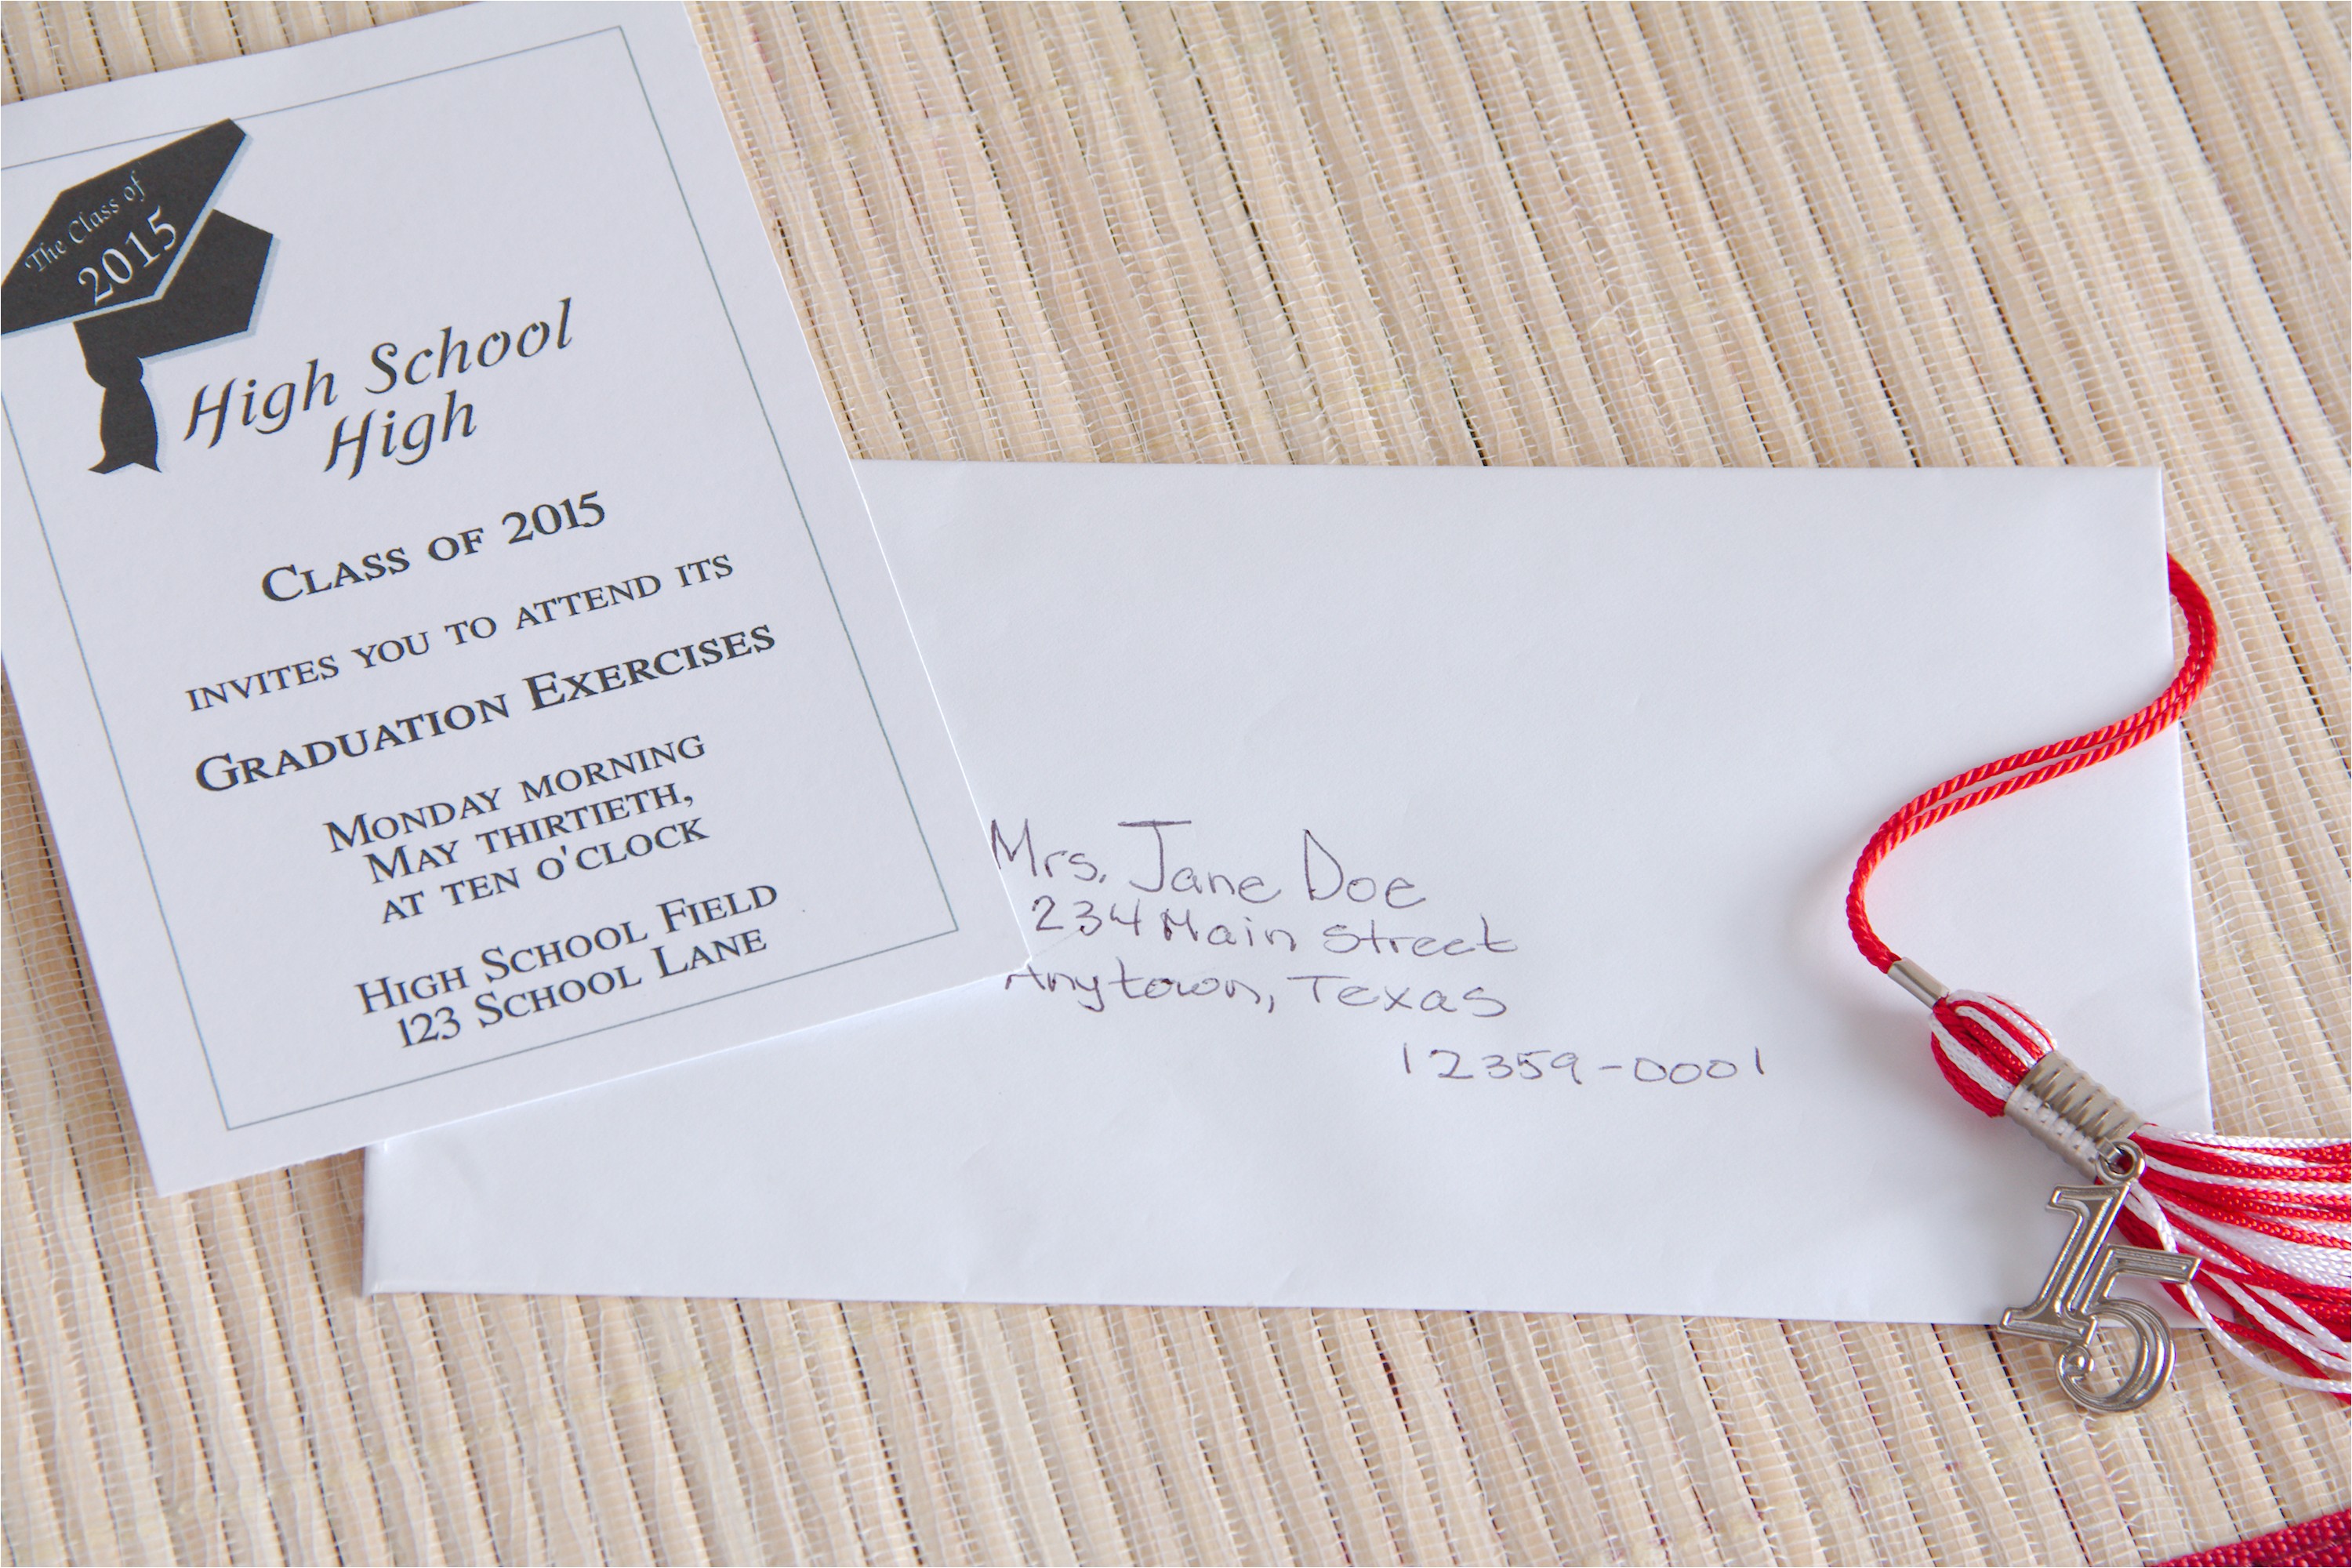 The Class of
2015
High School
High
CLASS OF 2015
INVITES YOU TO ATTEND ITS
GRADUATION EXERCISES
MONDAY MORNING
MAY THIRTIETH,
AT TEN O'CLOCK
HIGH SCHOOL FIELD
123 SCHOOL LANE
Mrs. Jane Doe
234 Main Street
Anytown, Texas
12359-0001
15